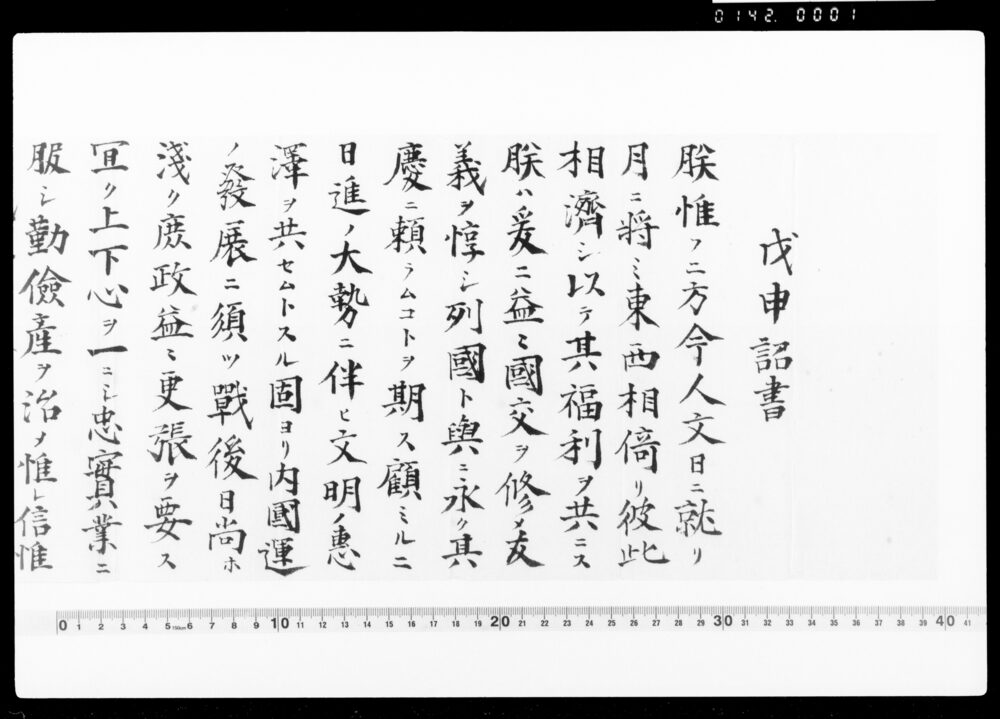 0142.0001
戊申詔書
朕惟フニ方今人文日ニ就リ
月ニ將ミ東西相倚リ彼此
相濟シ以テ其福利ヲ共ニス
朕ハ爰ニ益ミ國交ヲ修メ友
義ヲ惇シ列國ト與ニ永ク其
慶ニ賴ラムコトヲ期ス顧ミルニ
日進ノ大勢ニ伴ヒ文明ノ惠
澤ヲ共セムトスル固ヨリ內國運
ノ發展ニ須ツ戰後日尚ホ
淺ク庶政益ミ更張ヲ要ス
宜ク上下心ヲ一ニシ忠實業ニ
服シ勤儉產ヲ治メ惟レ信惟
0 1 2 3 4 5 150cm 6 7 8 9 10 11 12 13 14 15 16 17 18 19 20 21 22 23 24 25 26 27 28 29 30 31 32 33 34 35 36 37 38 39 40 41